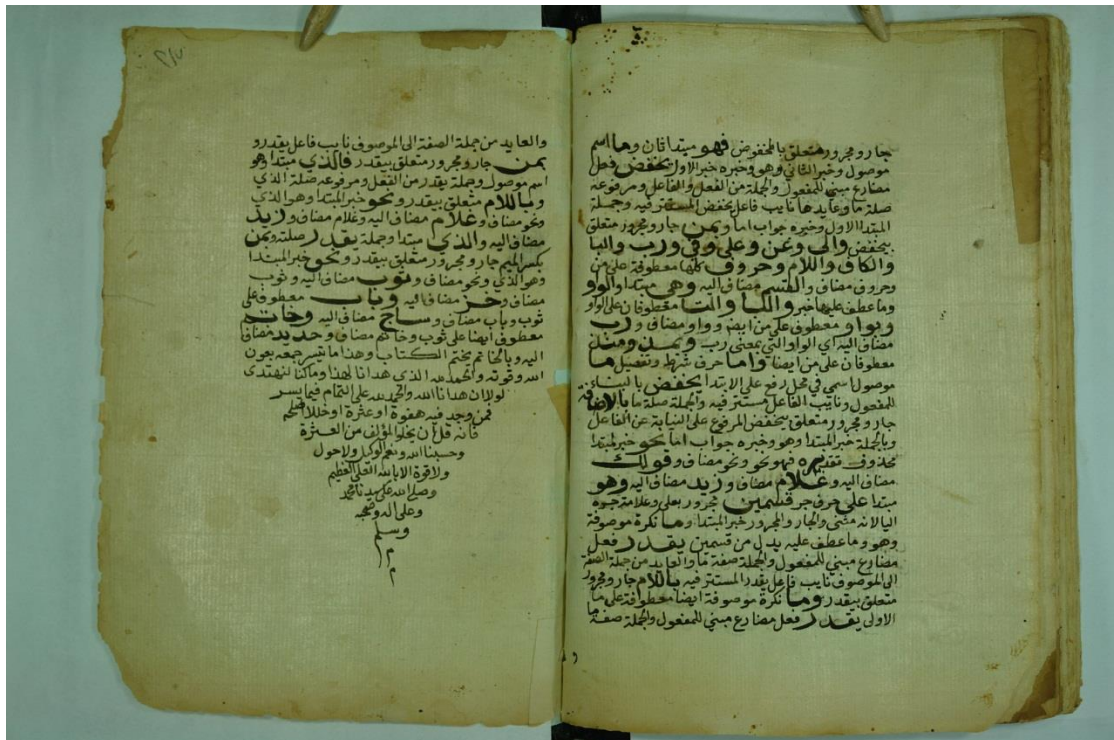 جار ومجرور متعلق بالمخفوض فهو مبتدا ثان وما اسم
موصول وخبر الثاني وهو وخبره خبر الاول يخفض فعل
مضارع مبني للمفعول والجملة من الفعل والفاعل ومرفوعه
صلة ما وعايدها نايب فاعل يخفض المستتر فيه وجملة
المبتدا الاول وخبره جواب اما وبمن جار ومجرور متعلق
بيخفض والى وعن وعلى وفي ورب والبا
والكاف واللام وحروف كلها معطوفة على من
وحروف مضاف والقسم مضاف اليه وهي مبتدا والواو
وما عطف عليها خبر والبا والتا معطوفان على الواو
وبواو معطوف على من ايضا وواو مضاف ورب
مضاف اليه اي الواو التي بمعنى رب وبمذ ومنذ
معطوفان على من ايضا واما حرف شرط وتفصيل ما
موصول اسمي في محل رفع على الابتدا يخفض بالبناء
للمفعول ونايب الفاعل مستتر فيه والجملة صلة ما بالاضافة
جار ومجرور متعلق بيخفض المرفوع على النيابة عن الفاعل
وبالجملة خبر المبتدا وهو وخبره جواب اما نحو خبر لمبتدا
محذوف تقديره فهو نحو ونحو مضاف وقولك
مضاف اليه وغلام مضاف وزيد مضاف اليه وهو
مبتدا على حرف جر قسمين مجرور بعلى وعلامة جره
اليا لانه مثنى والجار والمجرور خبر المبتدا وما نكرة موصوفة
وهو وما عطف عليه بدل من قسمين يقدر فعل
مضارع مبني للمفعول والجملة صفة ما والعايد من جملة الصفة
الى الموصوف نايب فاعل يقدر المستتر فيه باللام جار ومجرور
متعلق بيقدر وما نكرة موصوفة ايضا معطوفة على ما
الاولى يقدر فعل مضارع مبني للمفعول والجملة صفة ما
والعايد من جملة الصفة الى الموصوف نايب فاعل يقدر و
بمن جار ومجرور متعلق بيقدر فالذي مبتدا وهو
اسم موصول وجملة يقدر من الفعل ومرفوعه صلة الذي
وباللام متعلق بيقدر ونحو خبر المبتدا وهو الذي
ونحو مضاف وغلام مضاف اليه وغلام مضاف وزيد
مضاف اليه والذي مبتدا وجملة يقدر صلته وبمن
بكسر الميم جار ومجرور متعلق بيقدر ونحو خبر المبتدا
وهو الذي ونحو مضاف وثوب مضاف اليه وثوب
مضاف وخز مضاف اليه وباب معطوف على
ثوب وباب مضاف وساج مضاف اليه وخاتم
معطوف ايضا على ثوب وخاتم مضاف وحديد مضاف
اليه وبالخاتم يختم الكتاب وهذا ما تيسر جمعه بعون
الله وقوته والحمد لله الذي هدانا لهذا وما كنا لنهتدي
لولا ان هدانا الله والحمد لله على التمام فيما يسر
فمن وجد فيه هفوة او عثرة او خللا
فانه قل ان يخلو المؤلف من العثرة
وحسبنا الله ونعم الوكيل ولا حول
ولا قوة الا بالله العلي العظيم
وصلى الله على سيدنا محمد
وعلى اله وصحبه
وسلم
م
م